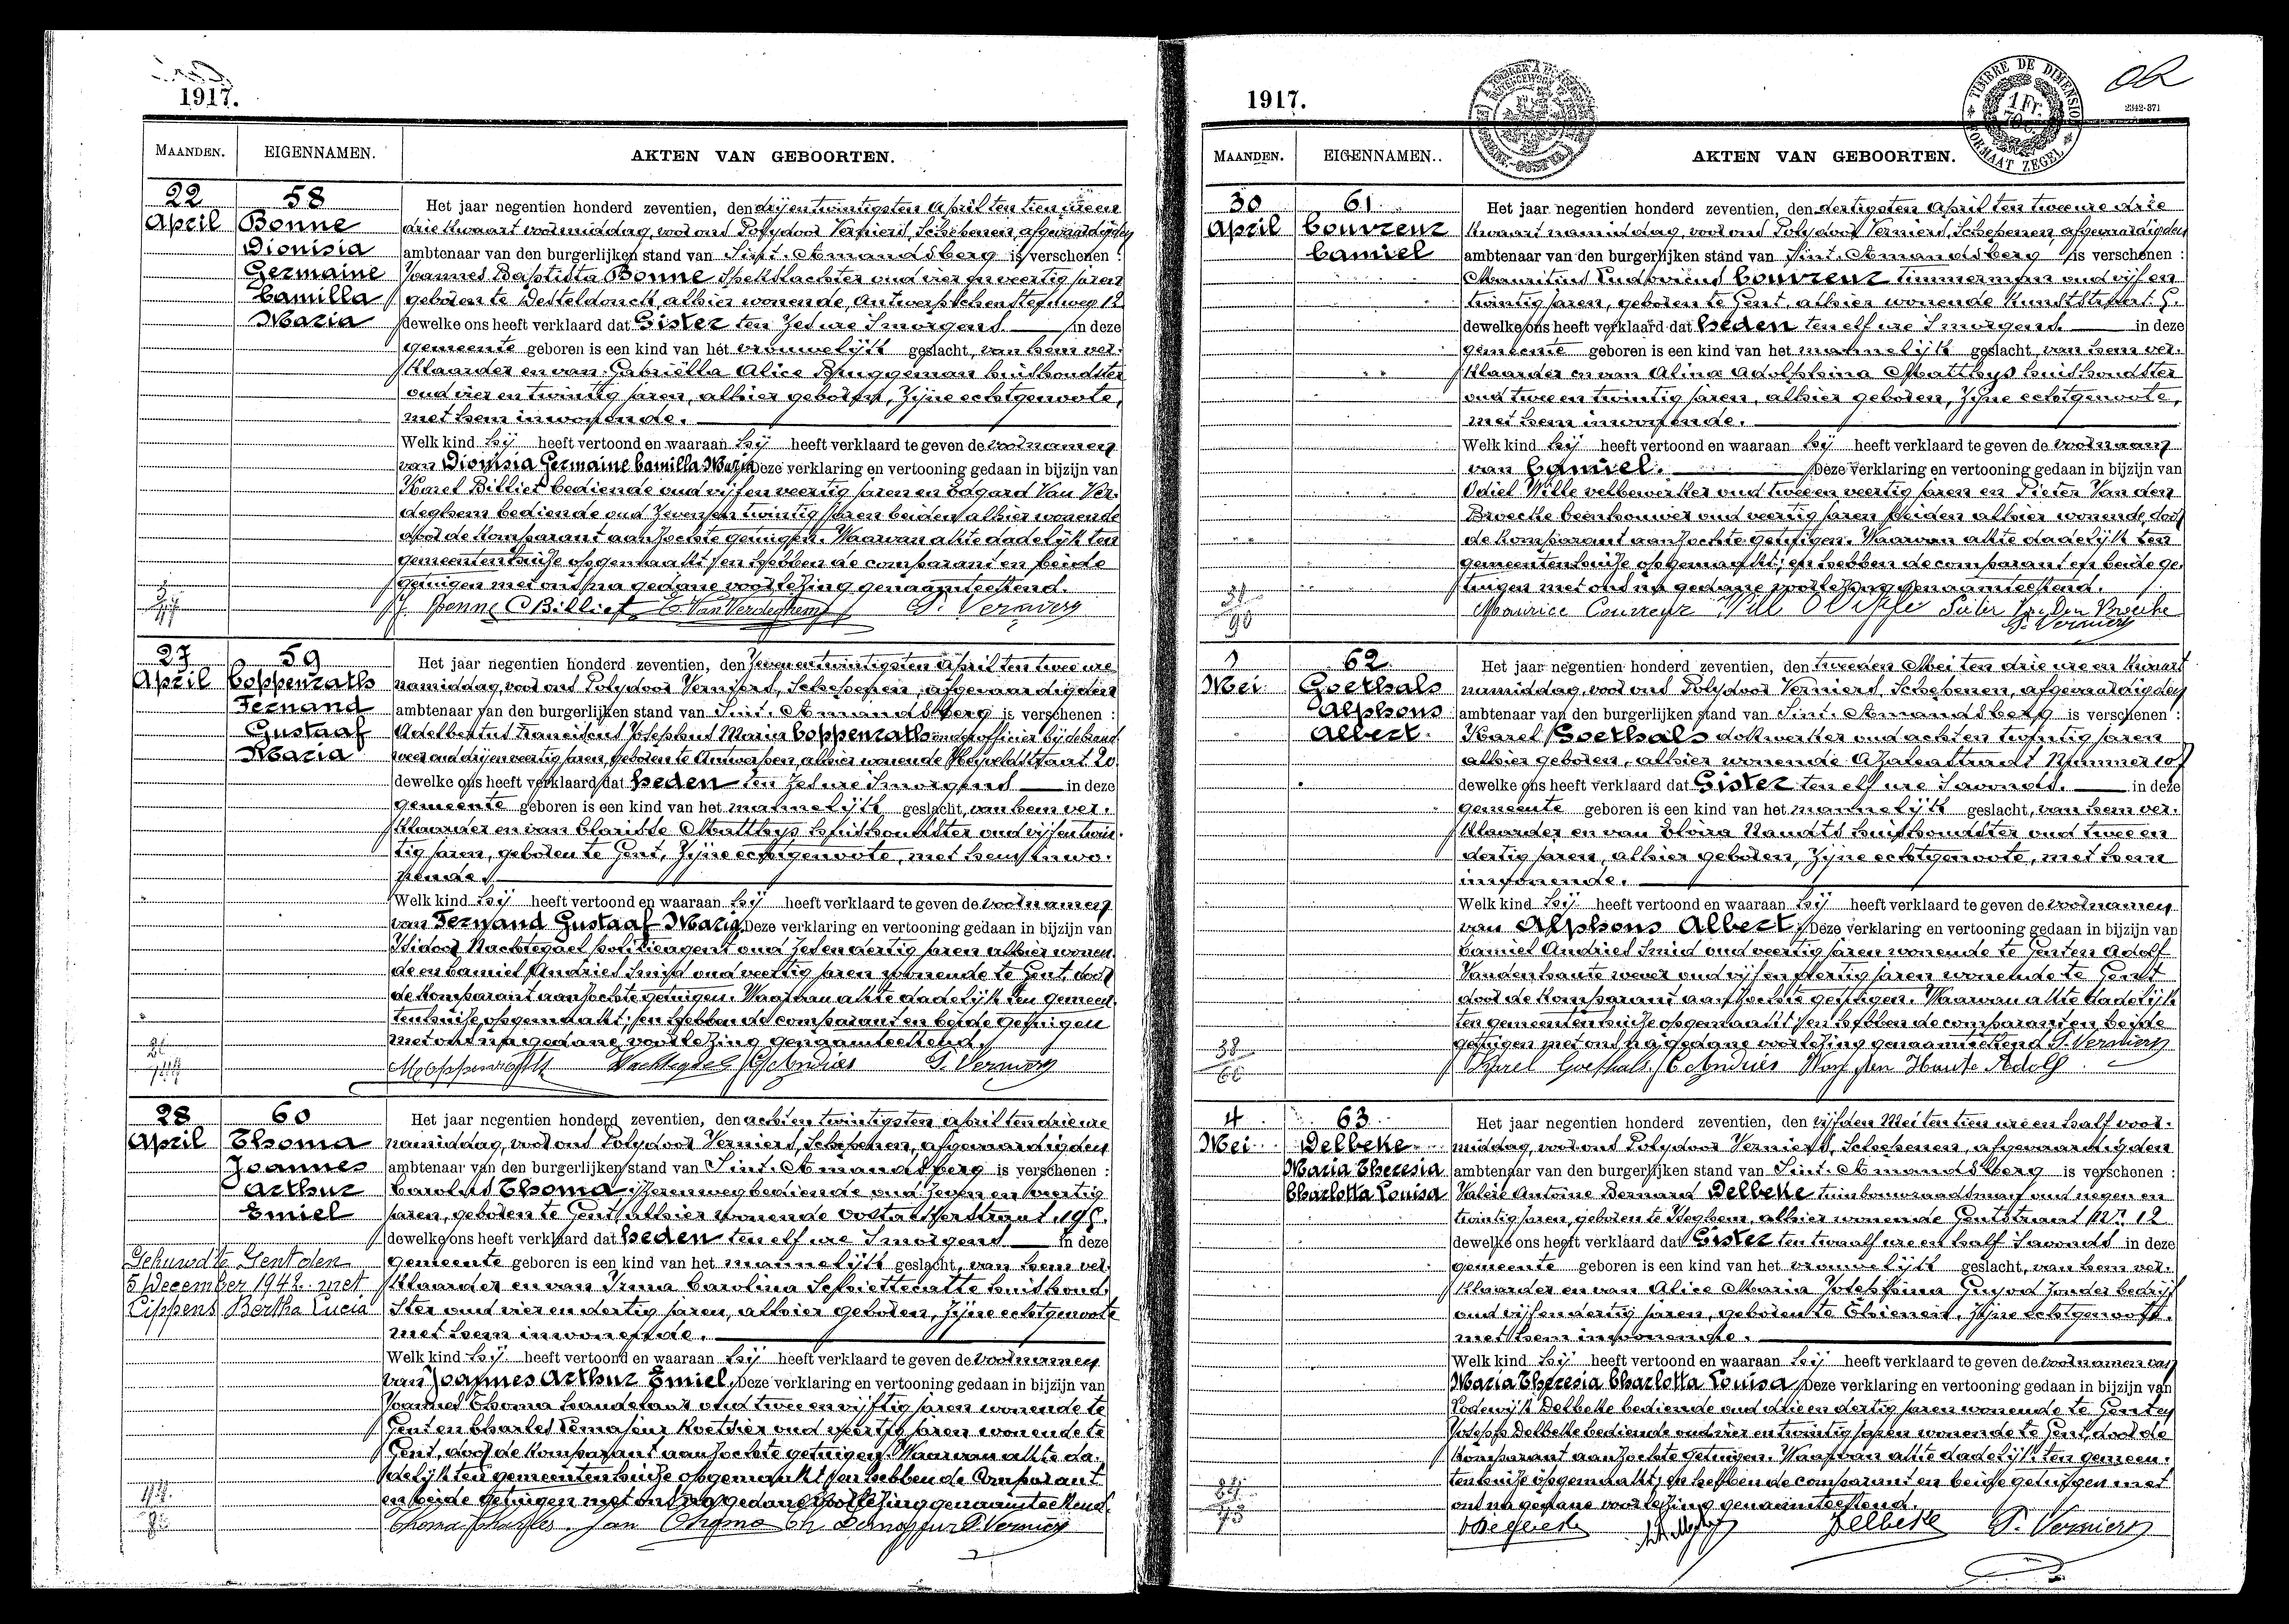 1917.
MAANDEN. EIGENNAMEN. AKTEN VAN GEBOORTEN.
22 58 Het jaar negentien honderd zeventien, den drijentwintigsten April ten tien ure en
April Bonne drie kwaart voormiddag, voor ons Polydoor Verniers, Schepenen, afgevaardigden
Dionisia ambtenaar van den burgerlijken stand van Sint-Amandsberg is verschenen :
Germaine Joannes Baptista Bonne spekslachter oud vier en veertig jaren
Camilla geboren te Desteldonck alhier wonende, Antwerpschensteenweg 12
Maria dewelke ons heeft verklaard dat Gister ten zes ure smorgens in deze
gemeente geboren is een kind van het vrouwelijk geslacht, van hem ver-
klaarder en van Gabriëlla Alice Bruggeman huishoudster
oud vier en twintig jaren, alhier geboren, zijne echtgenoote,
met hem inwonende.
Welk kind hij heeft vertoond en waaraan hij heeft verklaard te geven de voornamen
van Dionisia Germaine Camilla Maria Deze verklaring en vertooning gedaan in bijzijn van
Karel Billiet bediende oud vijf en veertig jaren en Edgard Van Ver-
deghem bediende oud zeven en twintig jaren beiden alhier wonende
door de komparant aanzochte getuigen. Waarvan akte dadelijk ten
gemeentenhuize opgemaakt, en hebben de comparant en beide
getuigen met ons na gedane voorlezing genaamteekend.
J. Bonne C Billiet E. Van Verdeghem P. Verniers
27 59 Het jaar negentien honderd zeventien, den zeven en twintigsten April ten twee ure
April Coppenrath namiddag, voor ons Polydoor Verniers, Schepenen, afgevaardigden
Fernand ambtenaar van den burgerlijken stand van Sint-Amandsberg is verschenen :
Gustaaf Adelbertus Franciscus Josephus Maria Coppenrath
Maria oud drij en veertig jaren, geboren te Antwerpen, alhier wonende 20
dewelke ons heeft verklaard dat heden ten zes ure smorgens in deze
gemeente geboren is een kind van het mannelijk geslacht, van hem ver-
klaarder en van Clarisse Matthys huishoudster oud vijf en twin-
tig jaren, geboren te Gent, zijne echtgenoote, met hem inwo-
nende.
Welk kind hij heeft vertoond en waaraan hij heeft verklaard te geven de voornamen
van Fernand Gustaaf Maria Deze verklaring en vertooning gedaan in bijzijn van
Isidoor Nachtegael politieagent oud zes en dertig jaren alhier wonen-
de en Camiel Andries Smid oud veertig jaren wonende te Gent door
de komparant aanzochte getuigen. Waarvan akte dadelijk ten gemeen-
tenhuize opgemaakt, en hebben de comparant en beide getuigen
met ons na gedane voorlezing genaamteekend.
Nachtegael C Andries P. Verniers
28 60 Het jaar negentien honderd zeventien, den acht en twintigsten April ten drie ure
April Thoma namiddag, voor ons Polydoor Verniers, Schepenen, afgevaardigden
Joannes ambtenaar van den burgerlijken stand van Sint-Amandsberg is verschenen :
Arthur Carolus Thoma ijzerenwegbediende oud zeven en veertig
Emiel jaren, geboren te Gent, alhier wonende Oostakkerstraat 196.
dewelke ons heeft verklaard dat heden ten elf ure smorgens in deze
Gehuwd te Gent den gemeente geboren is een kind van het mannelijk geslacht, van hem ver-
5 December 1942 met klaarder en van Irma Carolina huishoud-
Cippens Bertha Lucia ster oud vier en dertig jaren, alhier geboren, zijne echtgenoote
met hem inwonende.
Welk kind hij heeft vertoond en waaraan hij heeft verklaard te geven de voornamen
van Joannes Arthur Emiel. Deze verklaring en vertooning gedaan in bijzijn van
Joannes Thoma handelaar oud twee en vijftig jaren wonende te
Gent en Charles koetsier oud veertig jaren wonende te
Gent, door de komparant aanzochte getuigen. Waarvan akte da-
delijk ten gemeentenhuize opgemaakt, en hebben de Comparant
en beide getuigen met ons na gedane voorlezing genaamteekend.
Thoma Charles Jan Thoma P. Verniers
1917.
TIMBRE DE DIMENSION
FORMAAT ZEGEL
1 Fr.
2342-371
MAANDEN. EIGENNAMEN.. AKTEN VAN GEBOORTEN.
30 61 Het jaar negentien honderd zeventien, den dertigsten April ten twee ure drie
April Couvreur kwaart namiddag, voor ons Polydoor Verniers, Schepenen, afgevaardigden
Camiel ambtenaar van den burgerlijken stand van Sint-Amandsberg is verschenen :
Mauritius Ludovicus Couvreur timmerman oud vijf en
twintig jaren, geboren te Gent, alhier wonende
dewelke ons heeft verklaard dat heden ten elf ure smorgens. in deze
gemeente geboren is een kind van het mannelijk geslacht, van hem ver-
klaarder en van Alina Adolphina Matthys huishoudster
oud twee en twintig jaren, alhier geboren, zijne echtgenoote,
met hem inwonende.
Welk kind hij heeft vertoond en waaraan hij heeft verklaard te geven de voornaam
van Camiel. Deze verklaring en vertooning gedaan in bijzijn van
Odiel Wille velbewerker oud twee en veertig jaren en Pieter Van den
Broecke beenhouwer oud veertig jaren beiden alhier wonende, door
de komparant aanzochte getuigen. Waarvan akte dadelijk ten
gemeentenhuize opgemaakt, en hebben de comparant en beide ge-
tuigen met ons na gedane voorlezing genaamteekend.
Maurice Couvreur Pieter Van Den Broecke
P. Verniers
1 62 Het jaar negentien honderd zeventien, den tweeden Mei ten drie ure en kwaart
Mei Goethals namiddag, voor ons Polydoor Verniers, Schepenen, afgevaardigden
Alphons ambtenaar van den burgerlijken stand van Sint-Amandsberg is verschenen :
Albert. Karel Goethals dokwerker oud acht en twintig jaren
alhier geboren, alhier wonende Azaleastraat Nummer 107
dewelke ons heeft verklaard dat Gister ten elf ure savonds. in deze
gemeente geboren is een kind van het mannelijk geslacht, van hem ver-
klaarder en van Elvira huishoudster oud twee en
dertig jaren, alhier geboren, zijne echtgenoote, met hem
inwonende.
Welk kind hij heeft vertoond en waaraan hij heeft verklaard te geven de voornamen
van Alphons Albert. Deze verklaring en vertooning gedaan in bijzijn van
Camiel Andries Smid oud veertig jaren wonende te Gent en Adolf
Vandenhaute wever oud vijf en veertig jaren wonende te Gent
door de komparant aanzochte getuigen. Waarvan akte dadelijk
ten gemeentenhuize opgemaakt, en hebben de comparant en beide
getuigen met ons na gedane voorlezing genaamteekend P. Verniers
Karel Goethals C Andries Van den Haute Adolf
4 63 Het jaar negentien honderd zeventien, den vijfden Mei ten tien ure en half voor-
Mei Delbeke middag, voor ons Polydoor Verniers, Schepenen, afgevaardigden
Maria Theresia ambtenaar van den burgerlijken stand van Sint-Amandsberg is verschenen :
Charlotta Louisa Valère Antoine Bernard Delbeke tuinbouwraadsman oud negen en
twintig jaren, geboren te Iseghem, alhier wonende Gentstraat Nr. 12
dewelke ons heeft verklaard dat Gister ten twaalf ure en half savonds in deze
gemeente geboren is een kind van het vrouwelijk geslacht, van hem ver-
klaarder en van Alice Maria Josephina zonder bedrijf
oud vijf en dertig jaren, geboren te Thienen, zijne echtgenoote.
met hem inwonende.
Welk kind hij heeft vertoond en waaraan hij heeft verklaard te geven de voornamen van
Maria Theresia Charlotta Louisa Deze verklaring en vertooning gedaan in bijzijn van
Lodewijk Delbeke bediende oud drie en dertig jaren wonende te Gent en
Joseph Delbeke bediende oud vier en twintig jaren wonende te Gent, door de
komparant aanzochte getuigen. Waarvan akte dadelijk ten gemeen-
tenhuize opgemaakt, en hebben de comparant en beide getuigen met
ons na gedane voorlezing genaamteekend.
Delbeke P. Verniers